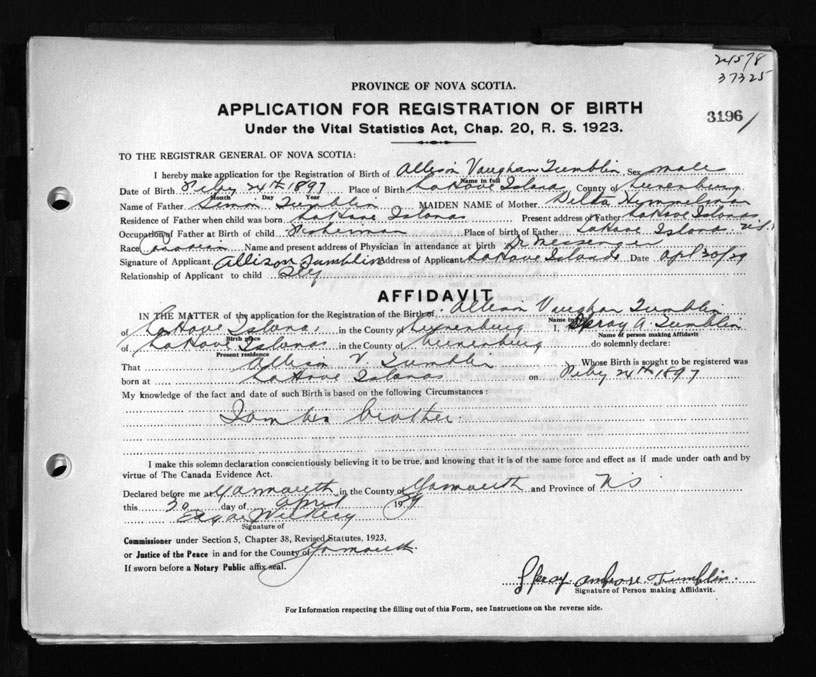 24578
37325
PROVINCE OF NOVA SCOTIA.
APPLICATION FOR REGISTRATION OF BIRTH
3196/
Under the Vital Statistics Act, Chap. 20, R. S. 1923.
TO THE REGISTRAR GENERAL OF NOVA SCOTIA:
I hereby make application for the Registration of Birth of Allison Vaughan Tumblin Sex male
Name in full
Date of Birth Feby 24th 1897 Place of Birth LaHave Islands County of Lunenburg
Month, Day Year
Name of Father Simon Tumblin MAIDEN NAME of Mother Delta Himmelman
Residence of Father when child was born LaHave Islands Present address of Father LaHave Islands
Occupation of Father at Birth of child Fisherman Place of birth of Father LaHave Islands
Race Canadian Name and present address of Physician in attendance at birth Dr Messenger
Signature of Applicant Allison Tumblin Address of Applicant LaHave Islands Date Apl 30/29
Relationship of Applicant to child Self
AFFIDAVIT
IN THE MATTER of the application for the Registration of the Birth of Allison Vaughan Tumblin
Name in full
of LaHave Islands, in the County of Lunenburg I, Leroy A. Tumblin
Birth place Name of person making Affidavit
of LaHave Islands in the County of Lunenburg do solemnly declare:
Present residence
That Allison V. Tumblin Whose Birth is sought to be registered was
born at LaHave Islands on Feby 24th 1897
My knowledge of the fact and date of such Birth is based on the following Circumstances:
I am his brother.
I make this solemn declaration conscientiously believing it to be true, and knowing that it is of the same force and effect as if made under oath and by
virtue of The Canada Evidence Act.
Declared before me at Yarmouth in the County of Yarmouth and Province of NS
this 30 day of April 1929
Signature of
Commissioner under Section 5, Chapter 38, Revised Statutes, 1923,
or Justice of the Peace in and for the County of Yarmouth.
If sworn before a Notary Public affix seal.
Leroy Ambrose Tumblin.
Signature of Person making Affidavit.
For Information respecting the filling out of this Form, see Instructions on the reverse side.